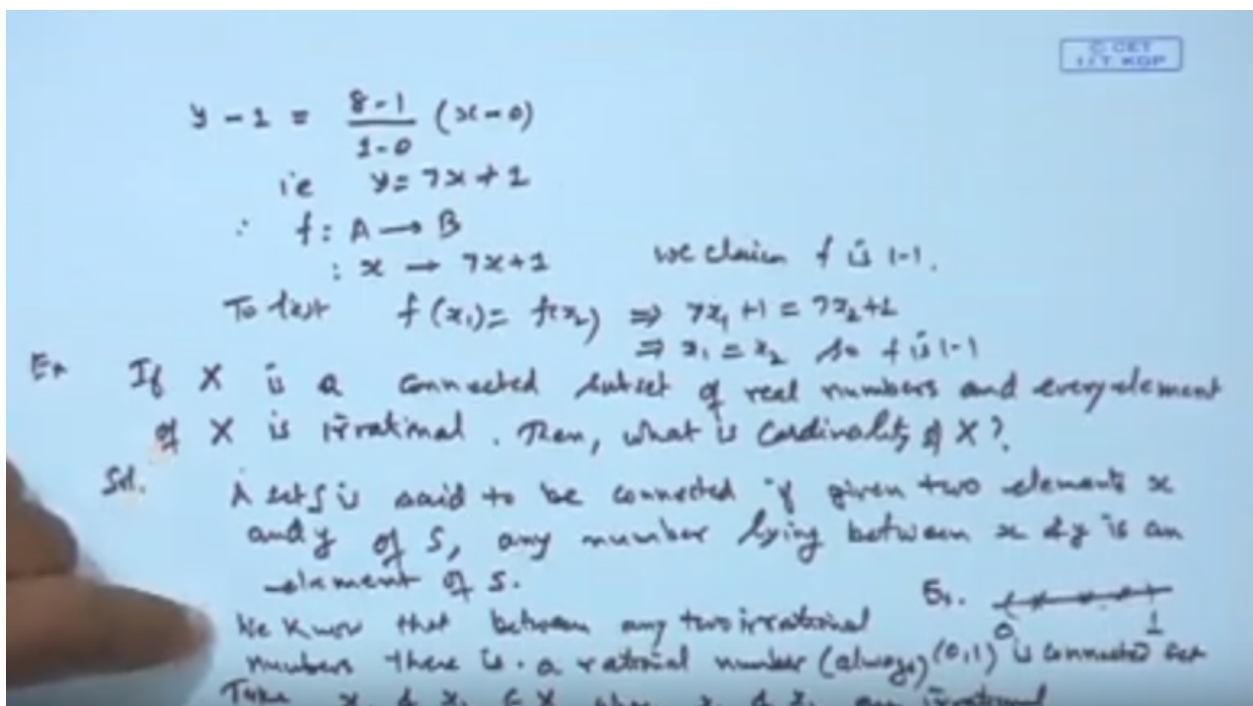 © CET
I.I.T. KGP
y - 1 = \frac{8-1}{1-0} (x-0)
i.e y = 7x + 1
∴ f : A → B
: x → 7x+1 we claim f is 1-1.
To test f(x₁) = f(x₂) ⇒ 7x₁ + 1 = 7x₂ + 1
⇒ x₁ = x₂ so f is 1-1
Ex If X is a connected subset of real numbers and every element
of X is irrational. Then, what is Cardinality of X?
Sol. A set S is said to be connected if given two elements x
and y of S, any number lying between x & y is an
element of S.
Ex.
0 1
We know that between any two irrational
numbers there is a rational number (always) (0,1) is connected set
Take x₁ & x₂ ∈ X where x₁ & x₂ are irrational